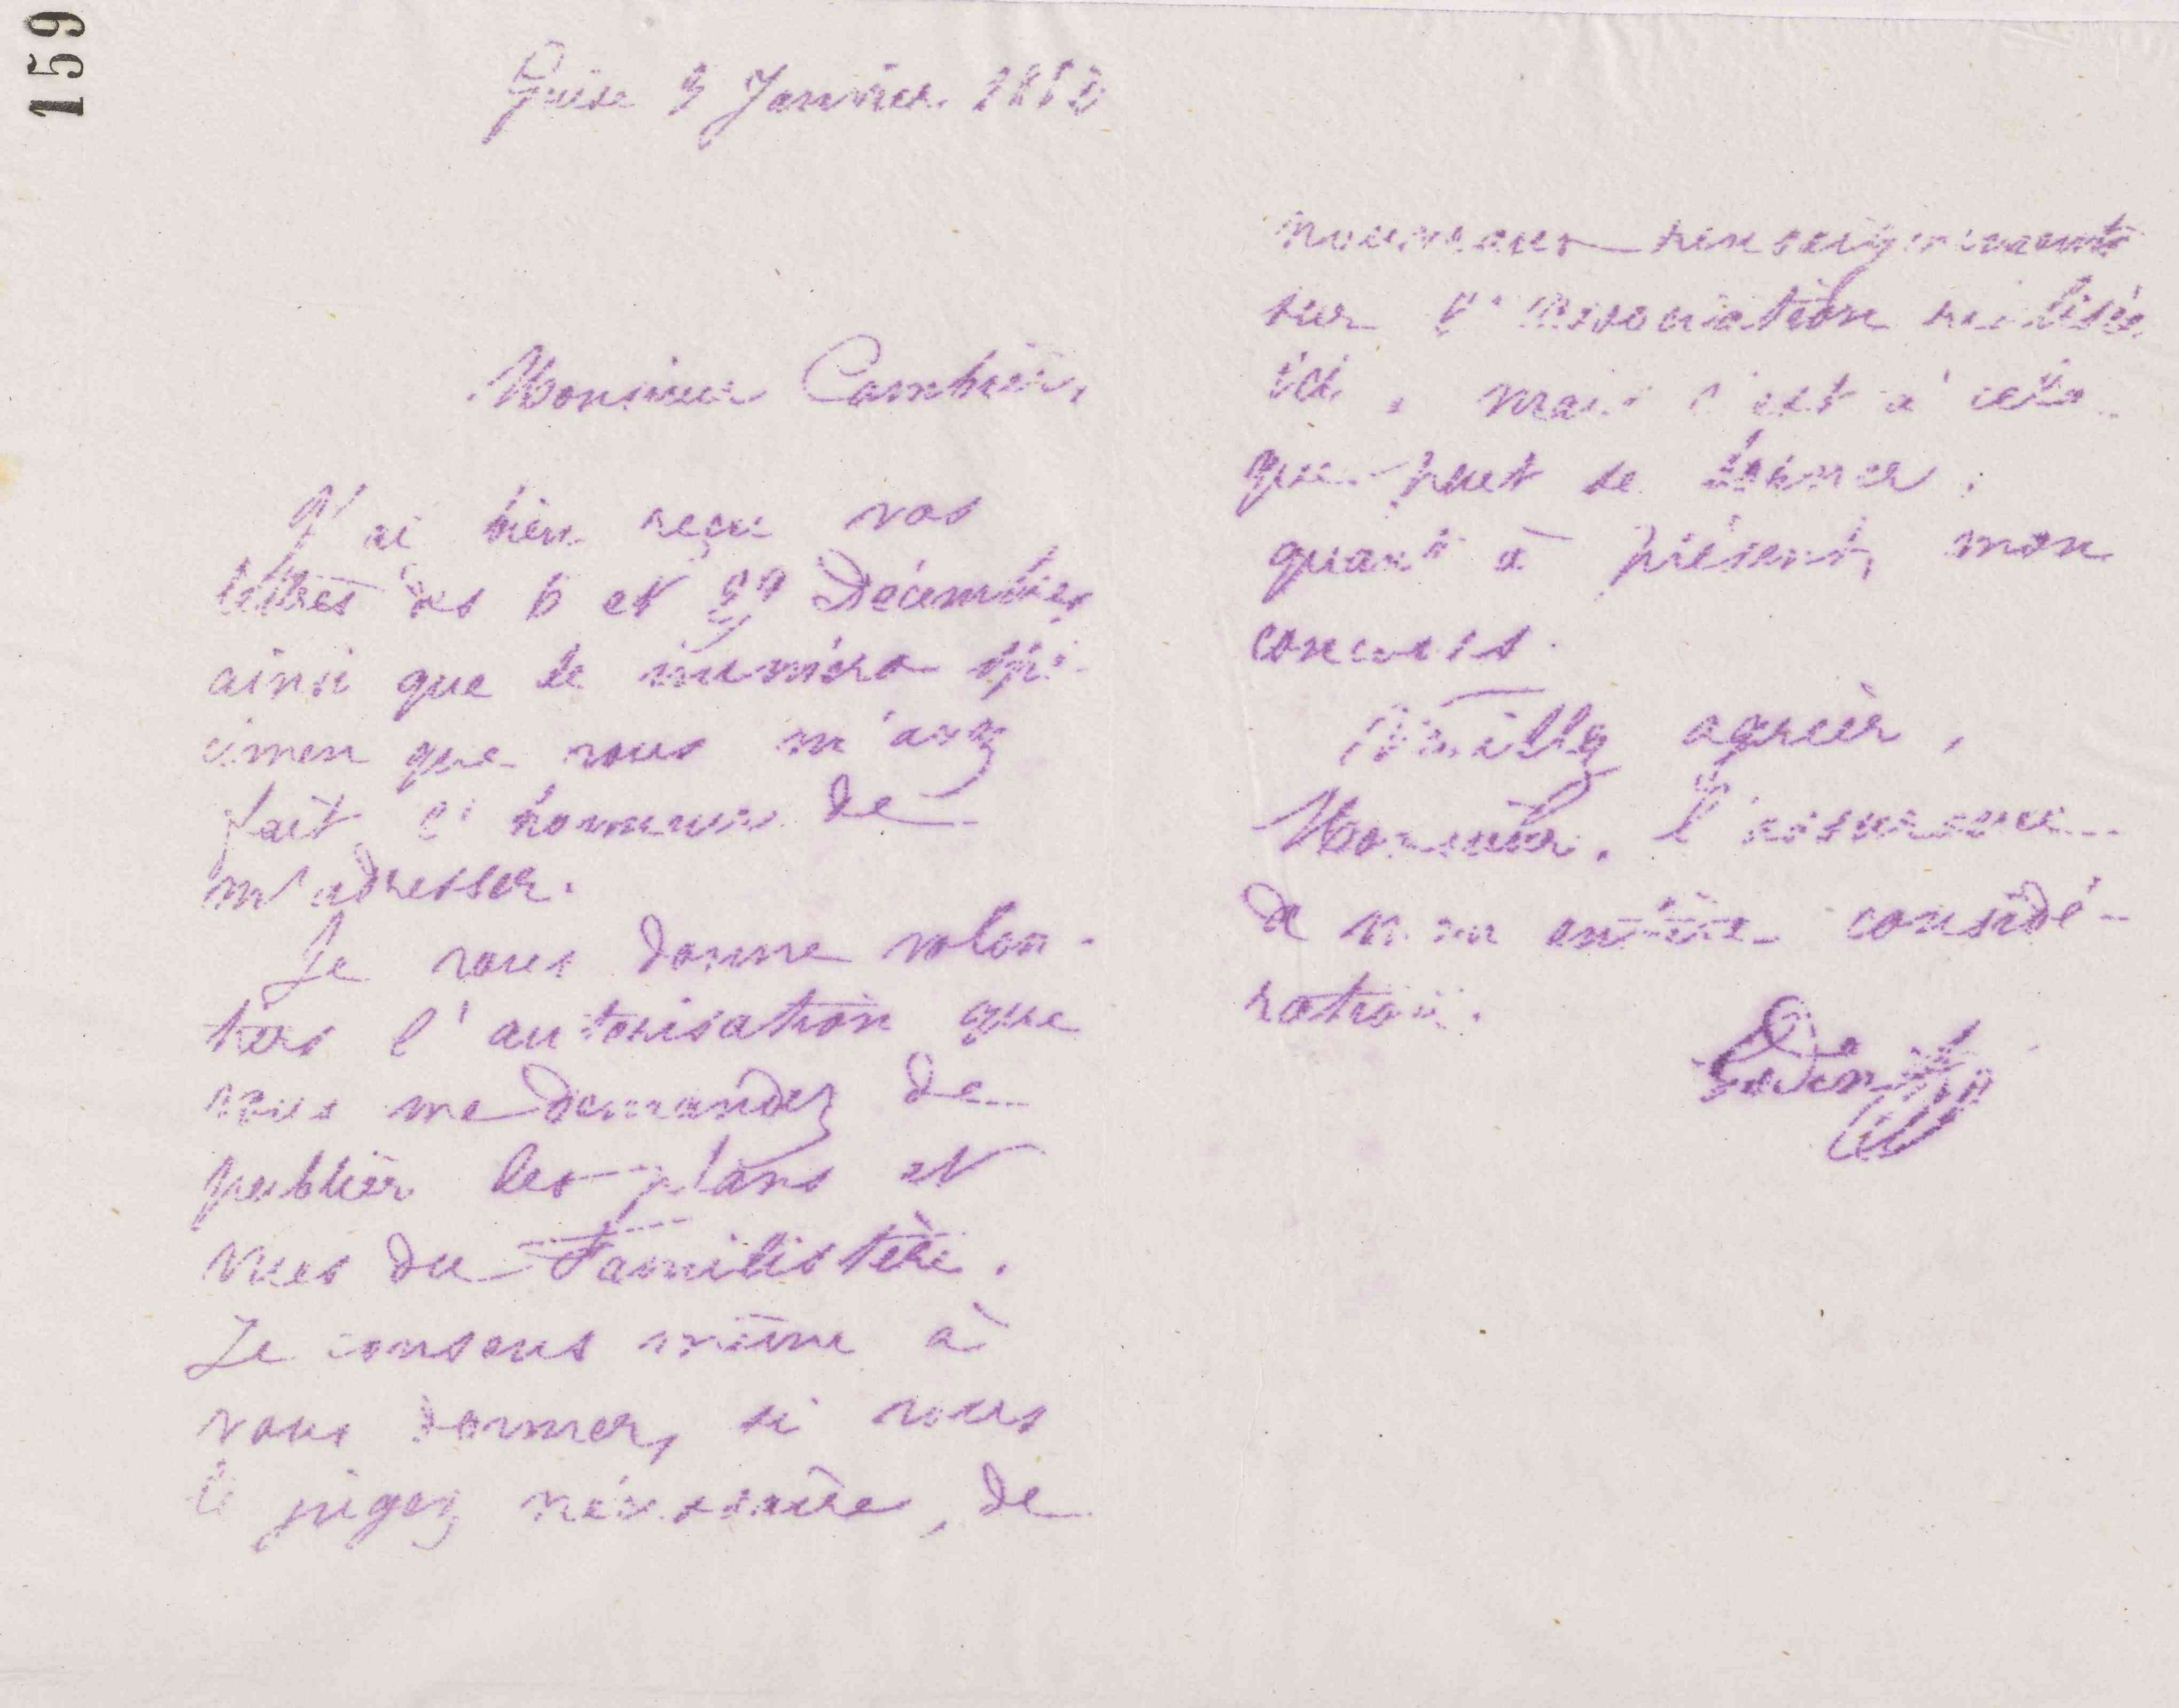 159
Guise 3 Janvier 1882
Monsieur Cambier,
J'ai bien reçu vos
lettres des 6 et 27 Décembre,
ainsi que le numéro spé-
cimen que vous m'avez
fait l'honneur de
m'adresser.
Je vous donne volon-
tiers l'autorisation que
vous me demandez de
publier les plans et
vues du Familistère.
Je consens même à
vous donner, si vous
le jugez nécessaire, de
nouveaux renseignements
sur l'Association réalisée
ici, mais c'est à cela
que peut se borner,
quant à présent, mon
concours.
Veuillez agréer,
Monsieur, l'assurance
de mon entière considé-
ration.
Godin